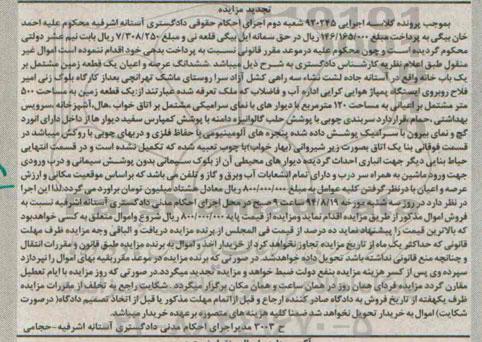 تجدید مزایده
بموجب پرونده کلاسه اجرایی ۹۲۰۲۴۵ شعبه دوم اجرای احکام حقوقی دادگستری آستانه اشرفیه محکوم علیه احمد
خان بیگی به پرداخت مبلغ ۱۴۶/۱۶۵/۰۰۰ ریال در حق سمانه ایل بیگی قلعه نی و مبلغ ۷/۳۰۸/۲۵۰ ریال بابت نیم عشر دولتی
محکوم گردیده است و چون محکوم علیه در موعد مقرر قانونی نسبت به پرداخت بدهی خود اقدام ننموده است اموال غیر
منقول طبق اعلام نظریه کارشناس دادگستری به شرح ذیل میباشد. ششدانگ عرصه و اعیان یک قطعه زمین مشتمل بر
یک باب خانه واقع در آستانه جاده لشت نشاء سه راهی کشل آزاد سرا روستای ماشک تهرانچی بعد از کارگاه بلوک زنی امیر
فلاح روبروی ایستگاه پمپاژ هوایی کرایی اداره آب و فاضلاب که ملک تعرفه شده عبارتند از: یک قطعه زمین به مساحت ۵۰۰
متر مشتمل بر اعیانی به مساحت ۱۲۰ مترمربع با دیوار های با نمای سرامیکی مشتمل بر اتاق خواب، هال، آشپزخانه، سرویس
بهداشتی، حمام، قرار دارد، سربندی چوبی با پوشش حلب گالوانیزه دامنه با پوشش کمپارس سفید دیوار ها از داخل دارای انود
گچ و نمای بیرون با سرامیک پوشش داده شده پنجره های آلومینیومی با حفاظ فلزی و دربهای چوبی با روکش میباشد در
قسمت فوقانی بنا یک اتاق بصورت زیر شیروانی (بهار خواب) با چوب تعبیه شده که تکمیل نشده است و در قسمت انتهایی
حیاط بنایی دیگر جهت انباری احداث گردیده دیوار های محیطی آن از بلوک سیمانی بدون پوشش سیمانی و درب ورودی
جهت ورود ماشین به همراه سر درب و دارای تمام انشعابات آب وبرق و گاز و تلفن می باشد که براساس موقعیت مکانی و ارزش
عرصه و اعیان با در نظر گرفتن کلیه عوامل به مبلغ ۸۰۰/۰۰۰/۰۰۰ ریال معادل هشتاد میلیون تومان برآورد می گردد. لذا این اجرا
در نظر دارد در روز سه شنبه مورخه ۹۴/۸/۱۹ ساعت ۹ صبح در محل اجرای احکام مدنی دادگستری آستانه اشرفیه نسبت به
فروش اموال مذکور از طریق مزایده اقدام نماید و مزایده از قیمت پایه ۸۰۰/۰۰۰/۰۰۰ ریال شروع و اموال متعلق به کسی خواهد بود
که بالاترین قیمت را پیشنهاد نماید ده درصد از قیمت فی المجلس از برنده مزایده دریافت و الباقی وجه مزایده ظرف مهلت
قانونی که حداکثر یک ماه از تاریخ مزایده تجاوز نخواهد کرد از خریدار اخذ و اموال به برنده مزایده طبق قانون و مقررات انتقال
و چنانچه منع قانونی نداشته باشد تحویل داده خواهد شد. در صورتی که برنده مزایده در موعد مقرر بقیه بهای اموال را نپردازد
سپرده وی پس از کسر هزینه مزایده بنفع دولت ضبط خواهد و مزایده تجدید میگردد. در صورتی که روز مزایده با ایام تعطیل
مقارن گردد مزایده فردای همان روز در همان ساعت و همان مکان برگزار میگردد. شکایت راجع به تخلف از مقررات مزایده
ظرف یکهفته از تاریخ فروش به دادگاه صادر کننده ارجاع و قبل از اتمام مهلت مذکور یا قبل از اتخاذ تصمیم دادگاه( در صورت
شکایت) اموال به خریدار تحویل نخواهد شد ضمنا کلیه هزینه های متصوره بر عهده خریدار میباشد.
ح ۳۰۰۳ مدیر اجرای احکام مدنی دادگستری آستانه اشرفیه-حجامی